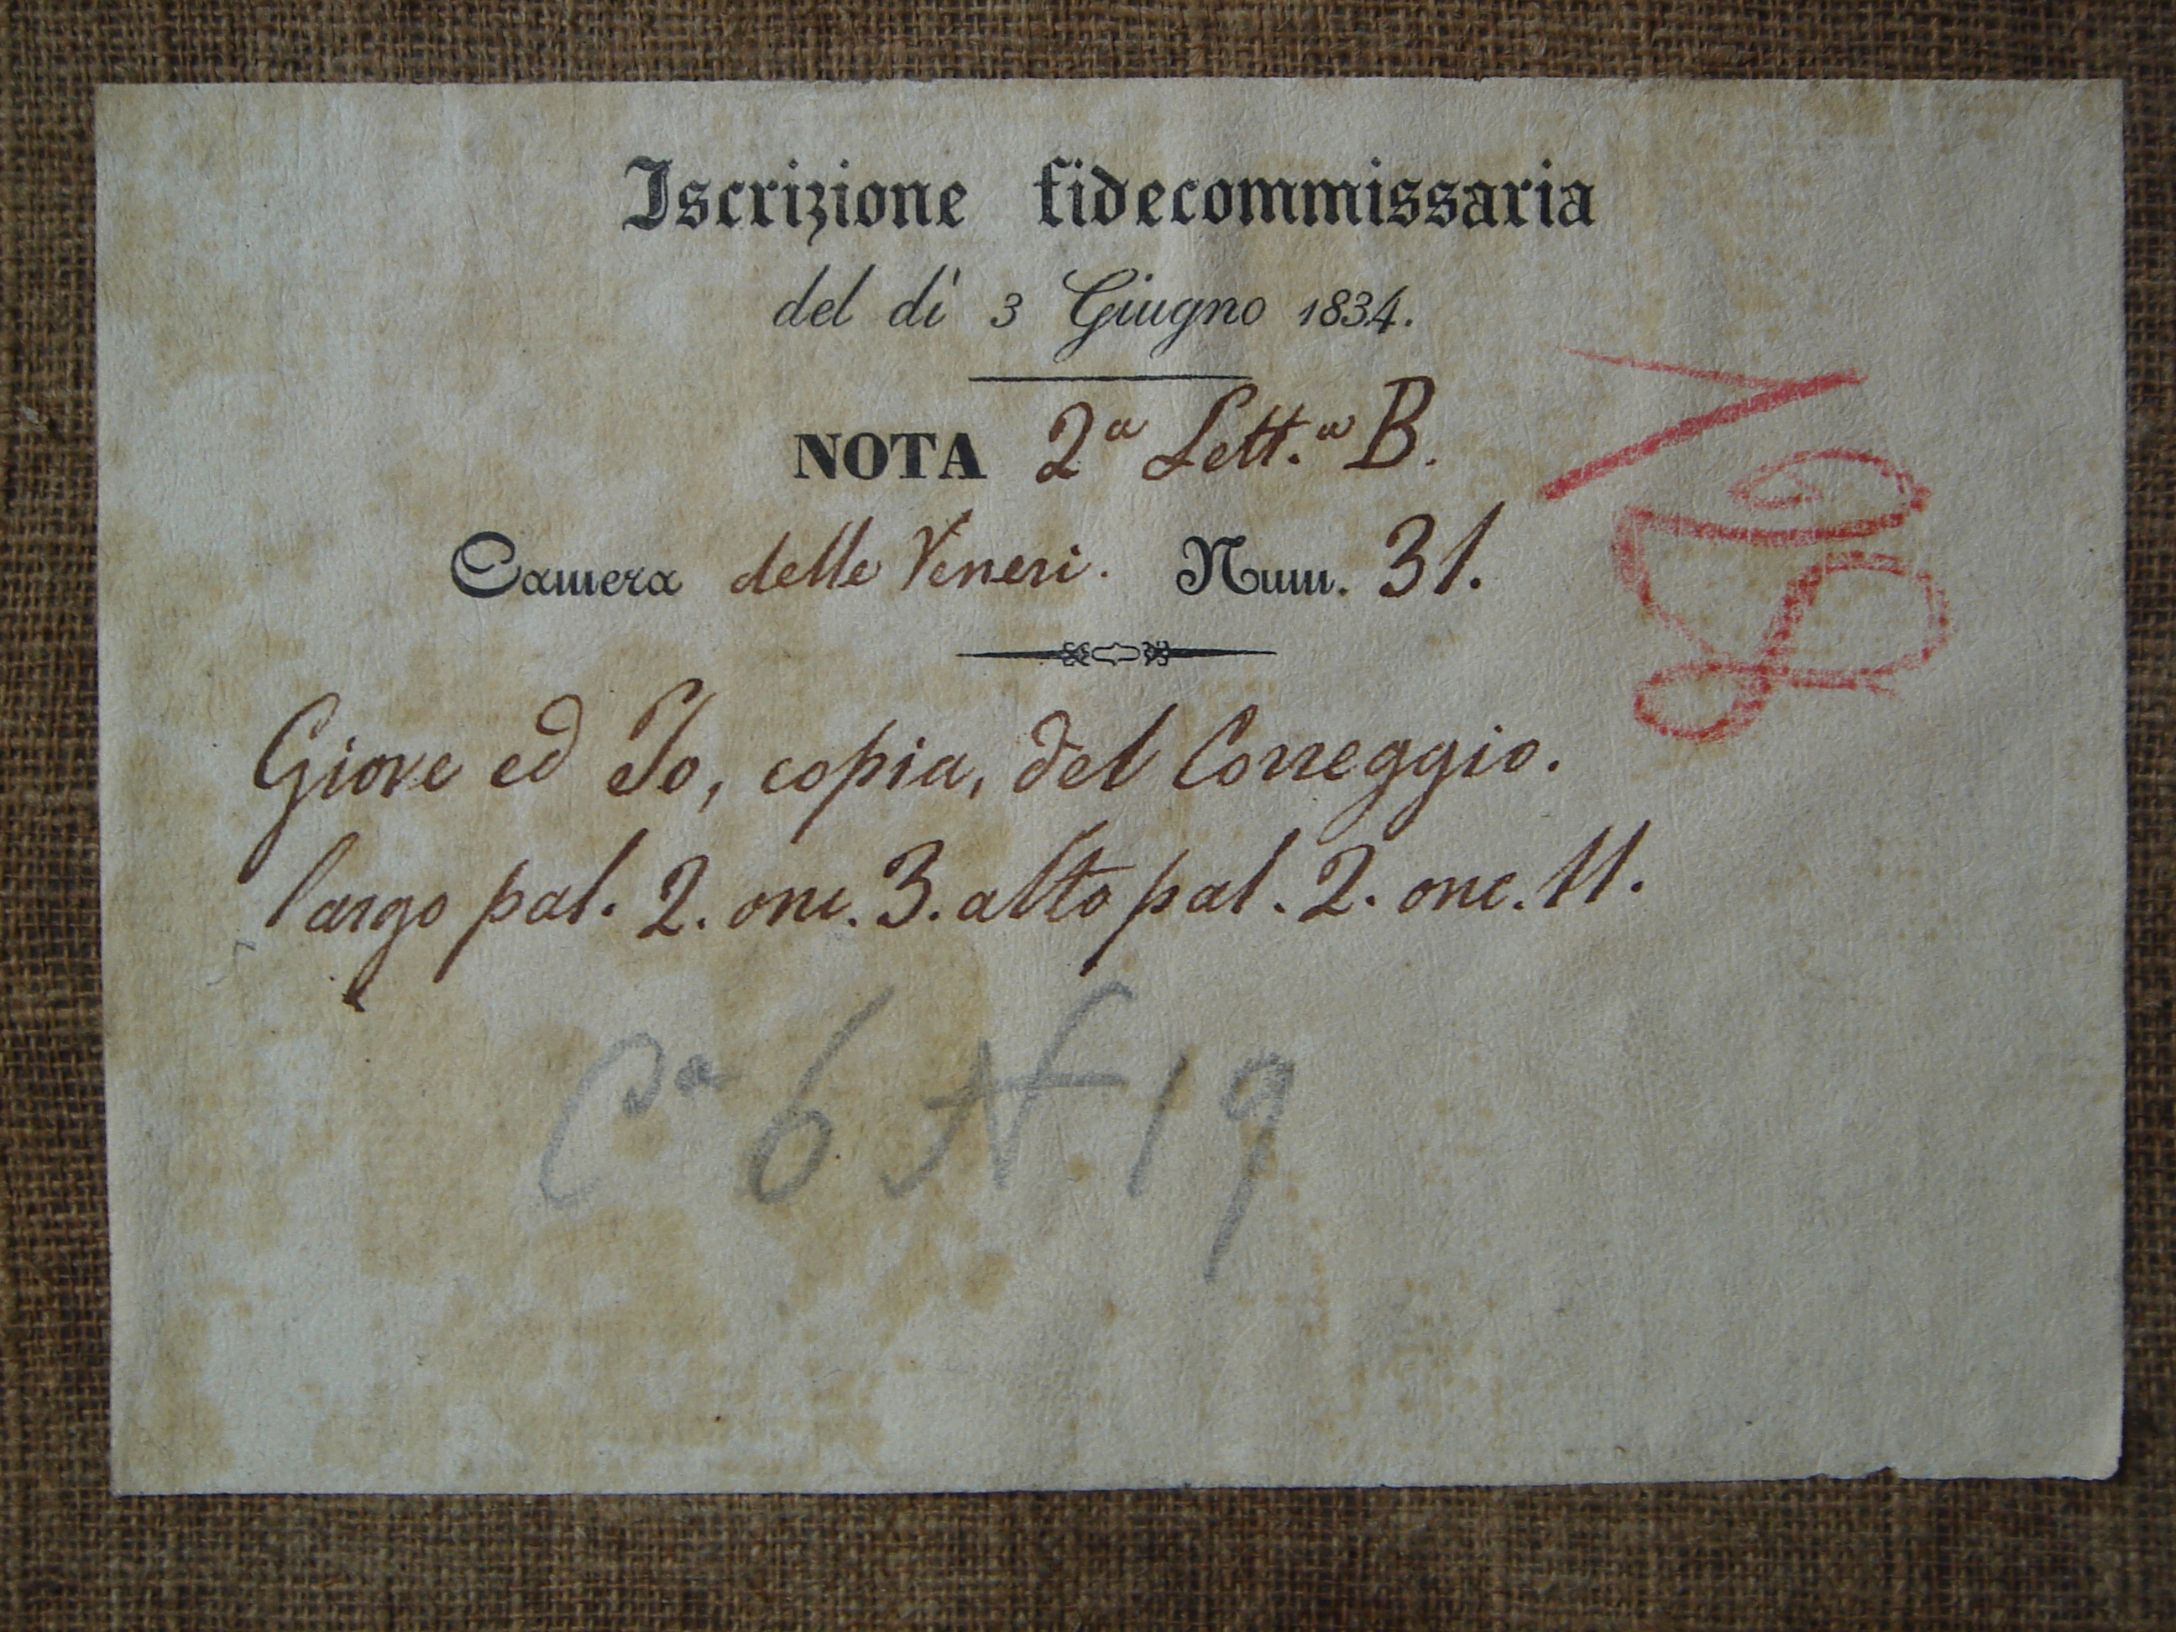 Iscrizione fidecommissaria
del dì 3 Giugno 1834.
NOTA 2ª Lett.ª B.
Camera delle Veneri. Num. 31.
Giove ed Io, copia, del Correggio.
largo pal. 2. onc. 3. alto pal. 2. onc. 11.
Cª 6 N 19